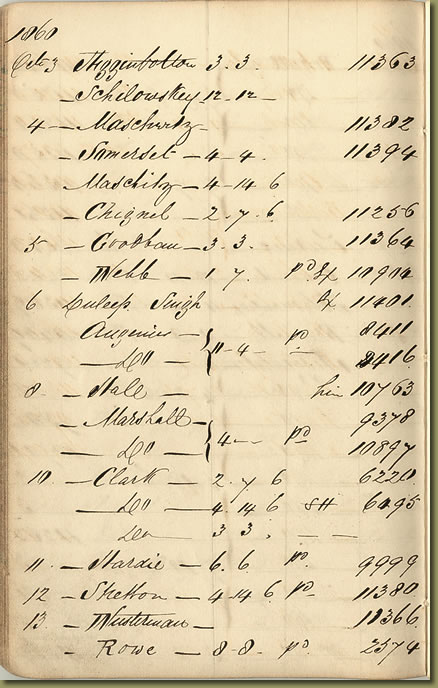 1860
Oct 3 Higginbotton 3. 3. 11363
— Schilowskey 12-12-
4 — Maschwitz — 11382
— Somerset — 4-4. 11394
Maschitz — 4-14 6
— Chignel — 2. 7. 6. 11256
5 — Goodban — 3. 3. 11364
— Webb — 1. 7. pd 10904
6 Duleep Singh 11401
Augenius — 11-4- pd 8411
— Do — — 8416
8. — Hale — 10763
— Marshall — 4 — — pd 9378
— Do — 10897
10 — Clark — 2. 7 6 6220
— Do — 4. 14 6 SH 6495
Do 3 3. — —
11. — Hardie — 6. 6 pd. 9999
12 — Shelton — 4-14 6 pd — 11380
13. — Winterman — 11366
— Rowe — 8-8. pd. 2574